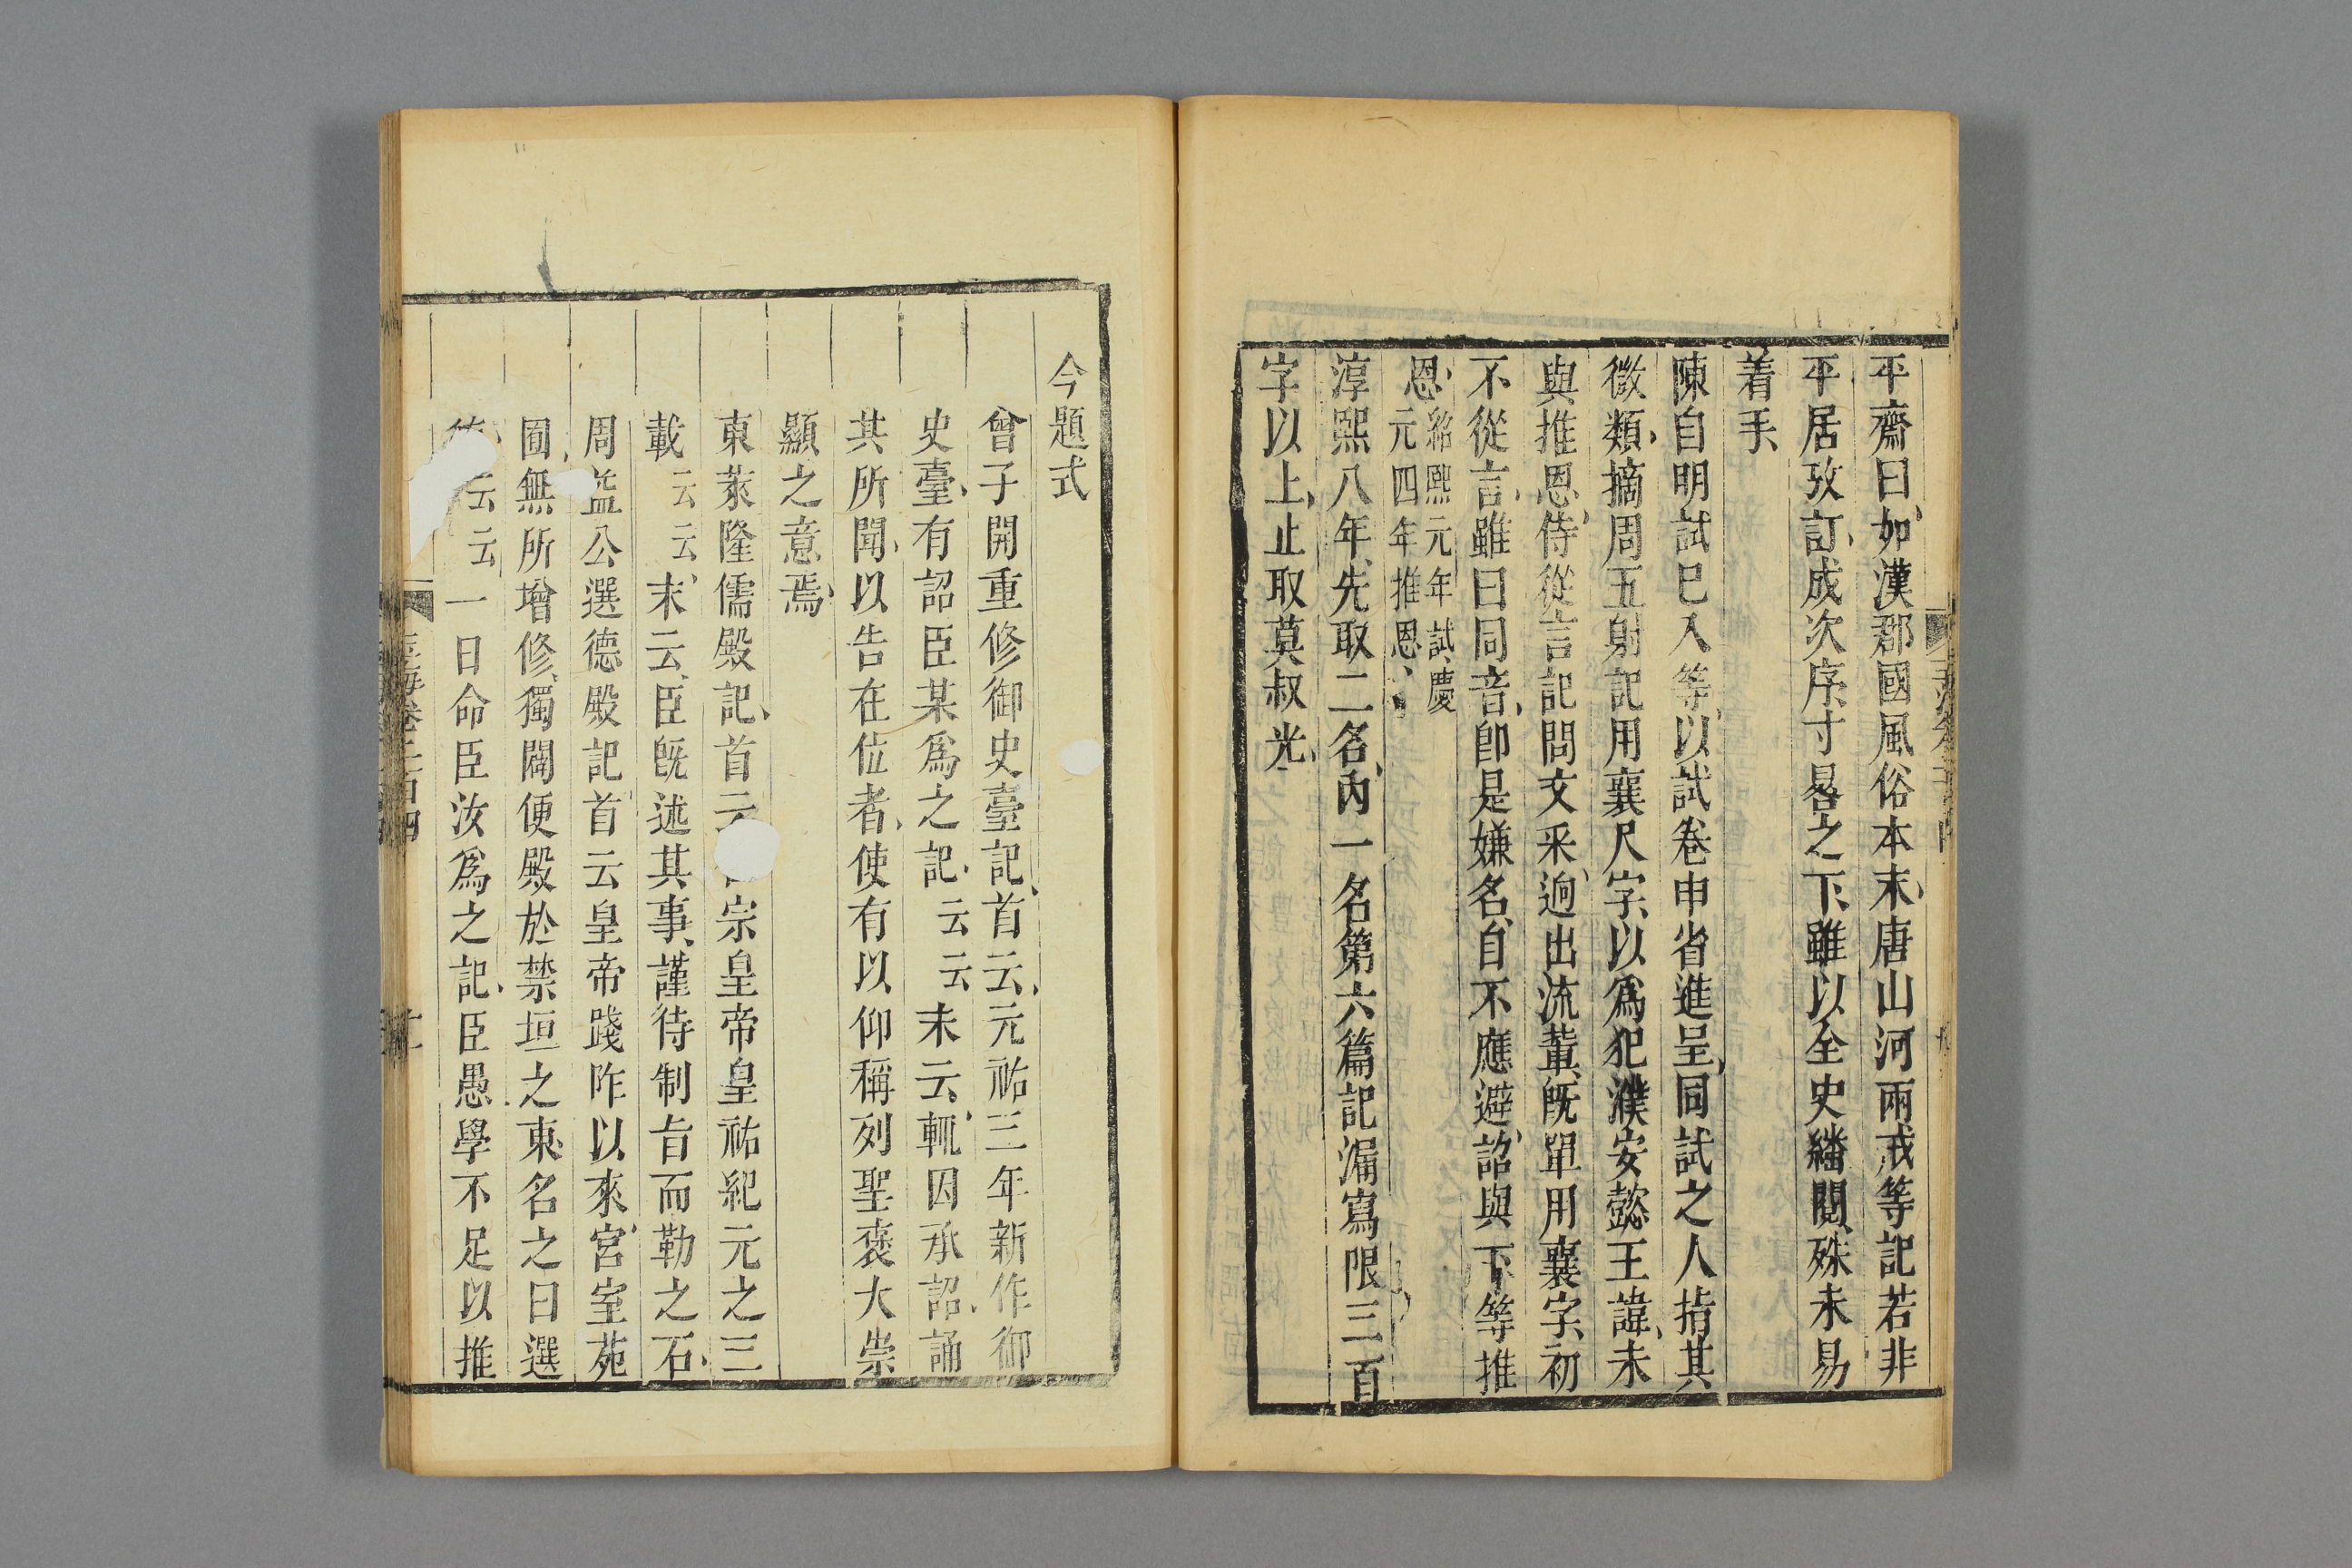 平齋曰如漢郡國風俗本末唐山河兩戒等記若非
平居攷訂成次序寸晷之下雖以全史繙閱殊未易
着手
陳自明試已入等以試卷申省進呈同試之人指其
徵類摘周五射記用襄尺字以爲犯濮安懿王諱未
與推恩待從言記問文采逈出流輩旣單用襄字初
不從言雖曰同音卽是嫌名自不應避詔與下等推
恩紹熙元年試慶元四年推恩
淳熙八年先取二名內一名第六篇記漏寫限三百
字以上止取莫叔光
今題式
曾子開重修御史臺記首云元祐三年新作御
史臺有詔臣某爲之記云云末云輒因承詔誦
其所聞以告在位者使有以仰稱列聖褒大崇
顯之意焉
東萊隆儒殿記首云宗皇帝皇祐紀元之三
載云云末云臣旣述其事謹待制旨而勒之石
周益公選德殿記首云皇帝踐阼以來宮室苑
囿無所增修獨闢便殿於禁垣之東名之曰選
德云云一日命臣汝爲之記臣愚學不足以推
玉海卷二百四